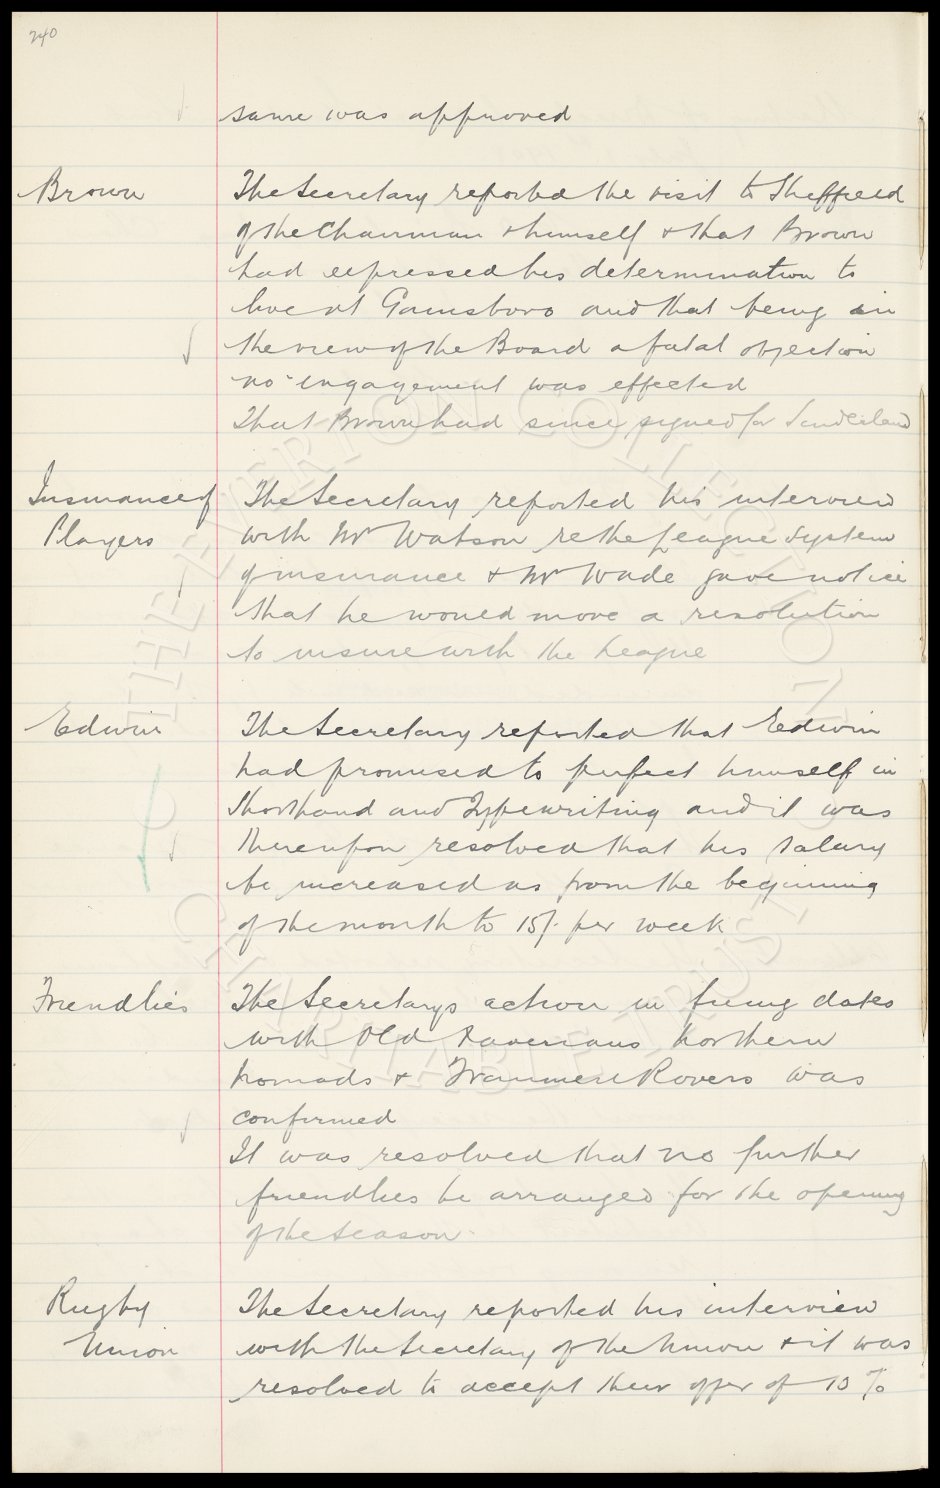 240
same was approved
Brown
The Secretary reported the visit to Sheffield
of the Chairman & himself & that Brown
had expressed his determination to
live at Gainsboro and that being in
the view of the Board a fatal objection
no engagement was effected
That Brown had since signed for Sunderland
Insurance of
Players
The Secretary reported his interview
with Mr Watson re the League system
of insurance & Mr Wade gave notice
that he would move a resolution
to insure with the League
Edwin
The Secretary reported that Edwin
had promised to perfect himself in
Shorthand and Typewriting and it was
thereupon resolved that his salary
be increased as from the beginning
of the month to 15/- per week
Friendlies
The Secretarys action in fixing dates
with Old Xaverians Northern
Nomads & Tranmere Rovers was
confirmed
It was resolved that no further
friendlies be arranged for the opening
of the season.
Rugby
Union
The Secretary reported his interview
with the Secretary of the Union & it was
resolved to accept their offer of 10 %
THE EVERTON COLLECTION
CHARITABLE TRUST